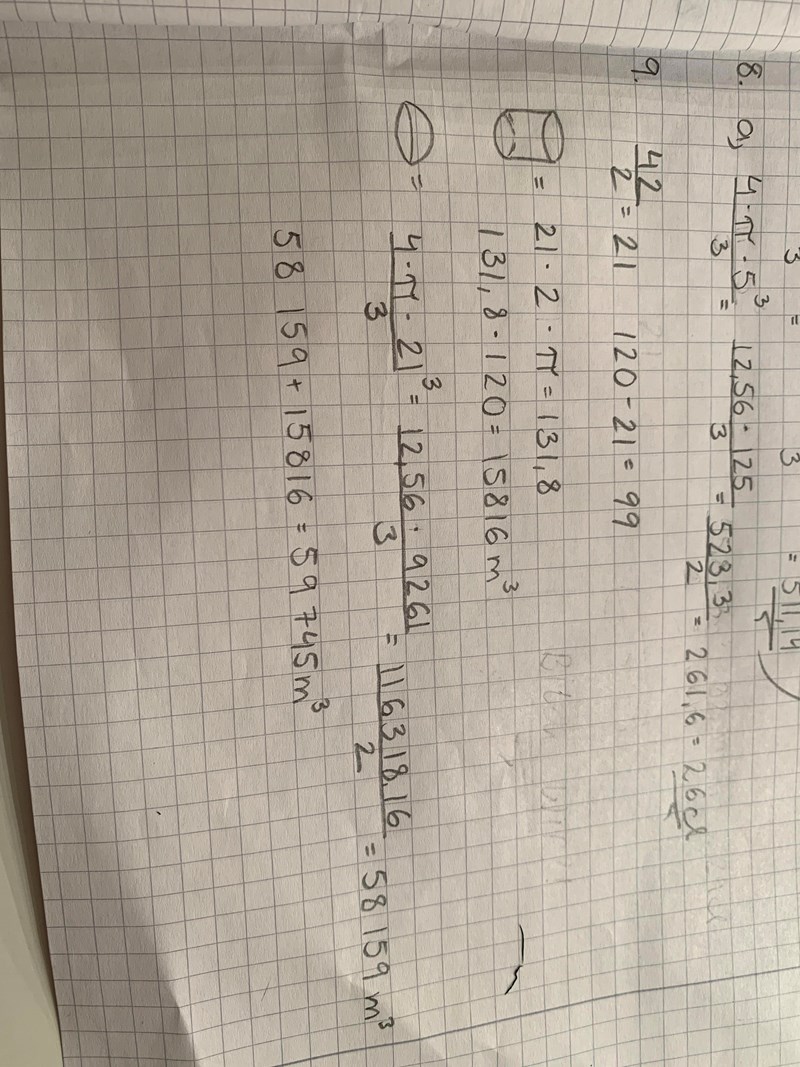 3 = 3 = 511,4
8. a) 4·π·5³/3 = 12,56·125/3 = 523,3/2 = 261,6 = 26cl
9. 42/2 = 21 120-21=99
= 21·2·π=131,8
131,8·120=15816m³
= 4·π·21³/3 = 12,56·9261/3 = 116318,16/2 = 58159m³
58 159+15816=59745m³